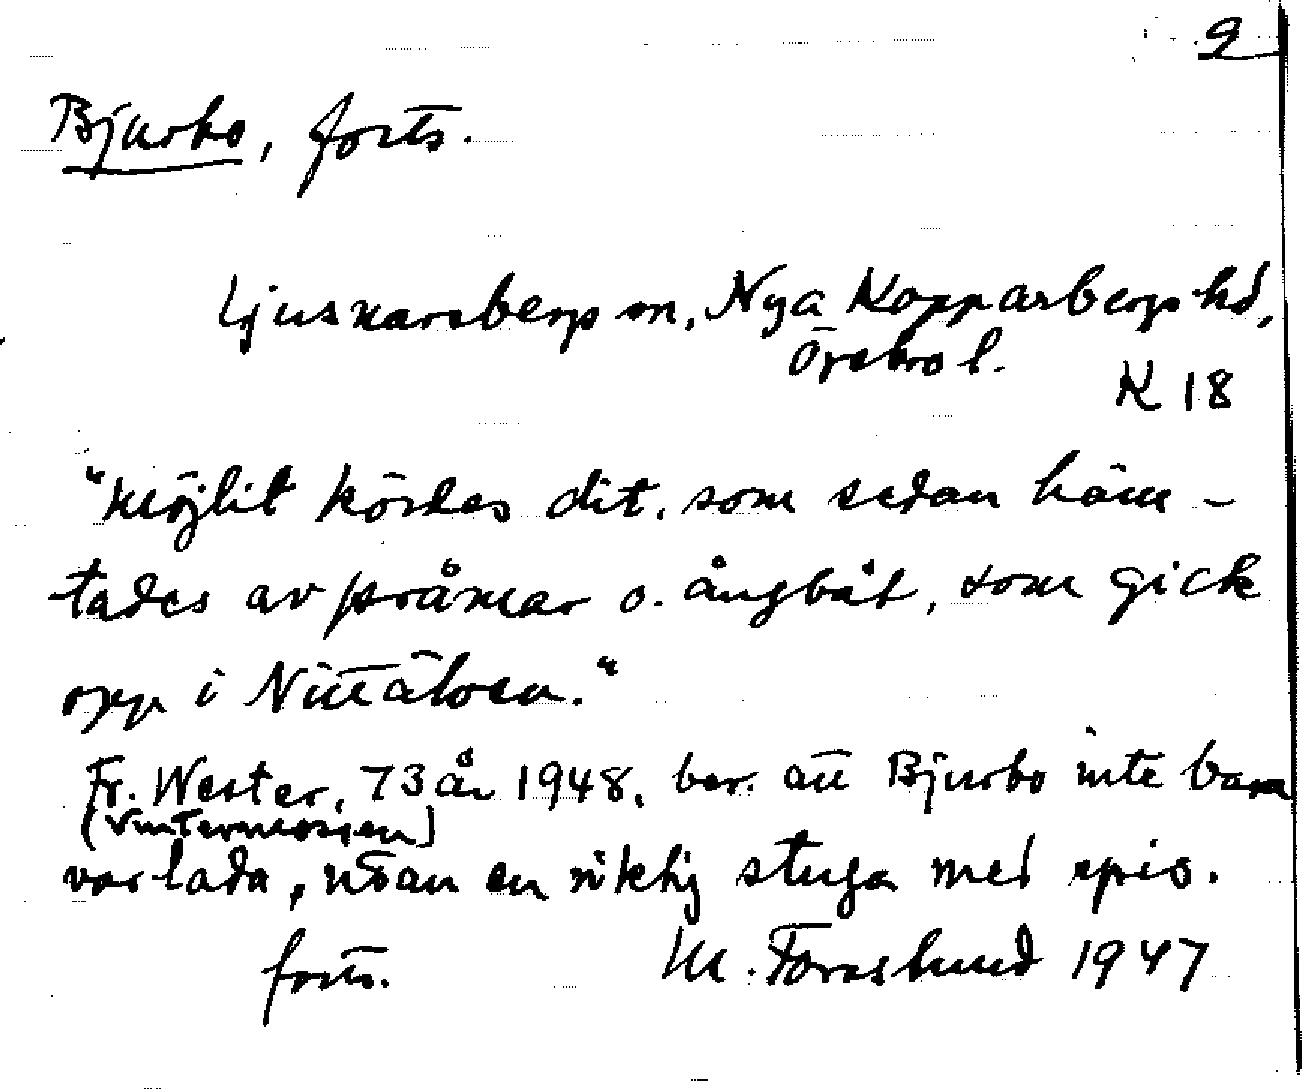 2
Bjurbo, forts.
Ljusnarsbergs sn, Nya Kopparbergs hd,
Örebro l.
K 18
"Möjlit kördes dit, som sedan häm-
tades av pråmar o. ångbåt, som gick
opp i Nittälven."
Fr. Wester, 73 år 1948, ber. att Bjurbo inte bara
(Vintermossen)
var lada, utan en riktig stuga med spis.
forts. M. Forslund 1947